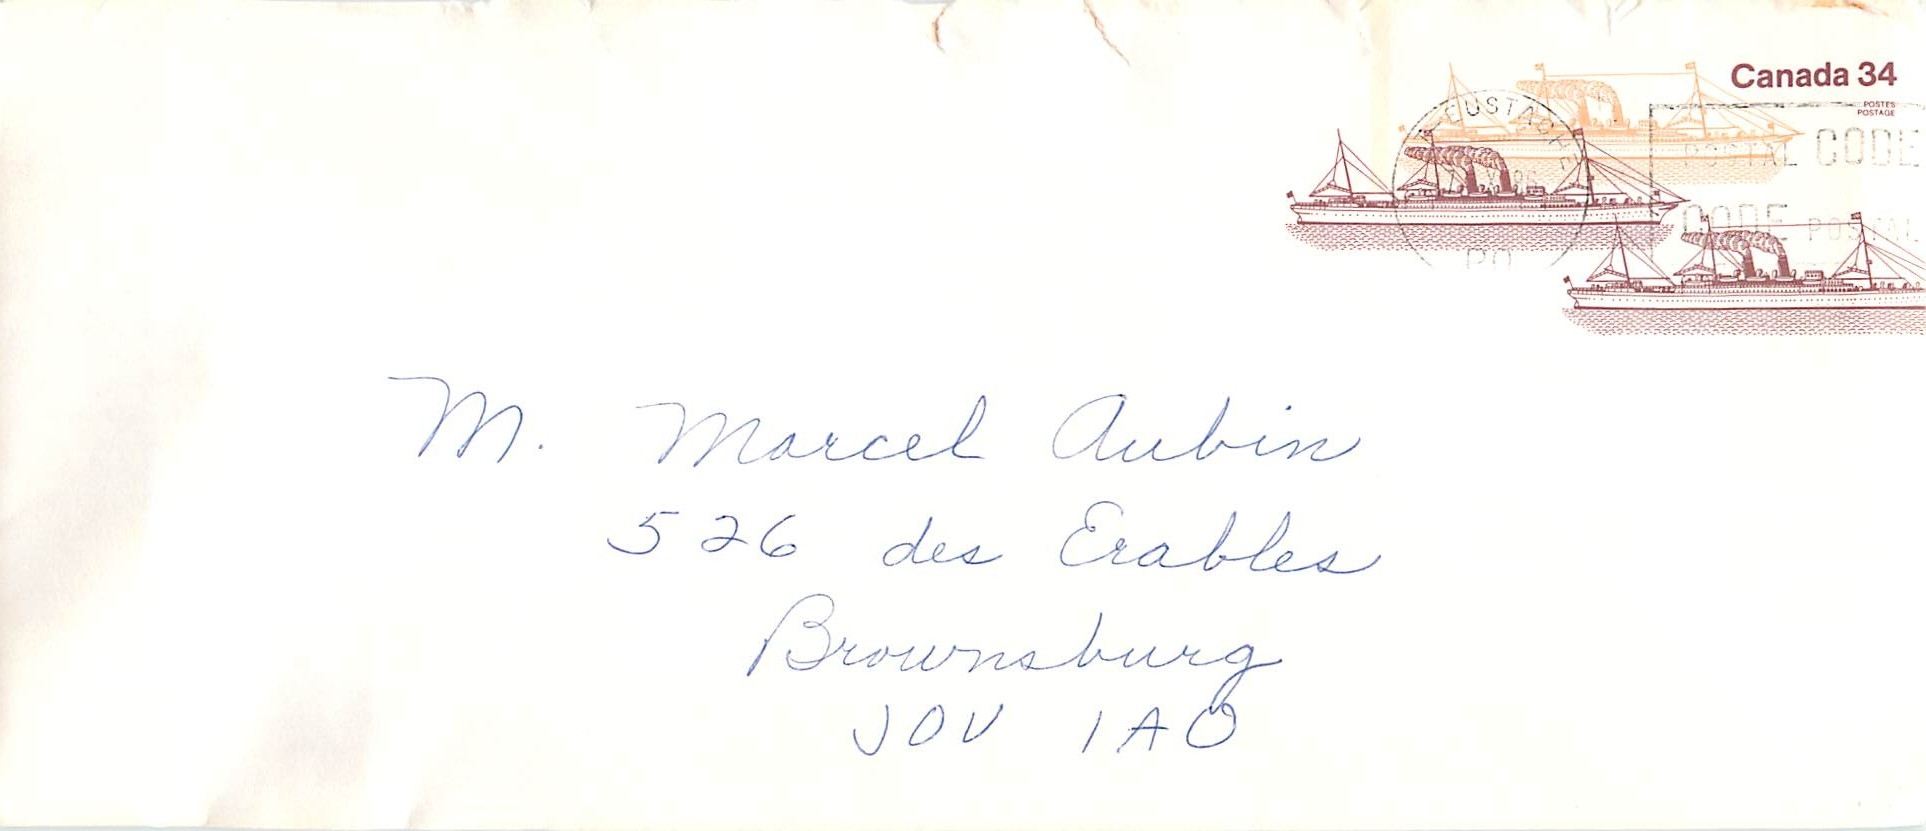 Canada 34
POSTES
POSTAGE
EUSTACHE
POSTAL CODE
CODE POSTAL
PQ
M. Marcel Aubin
526 des Erables
Brownsburg
J0V 1A0